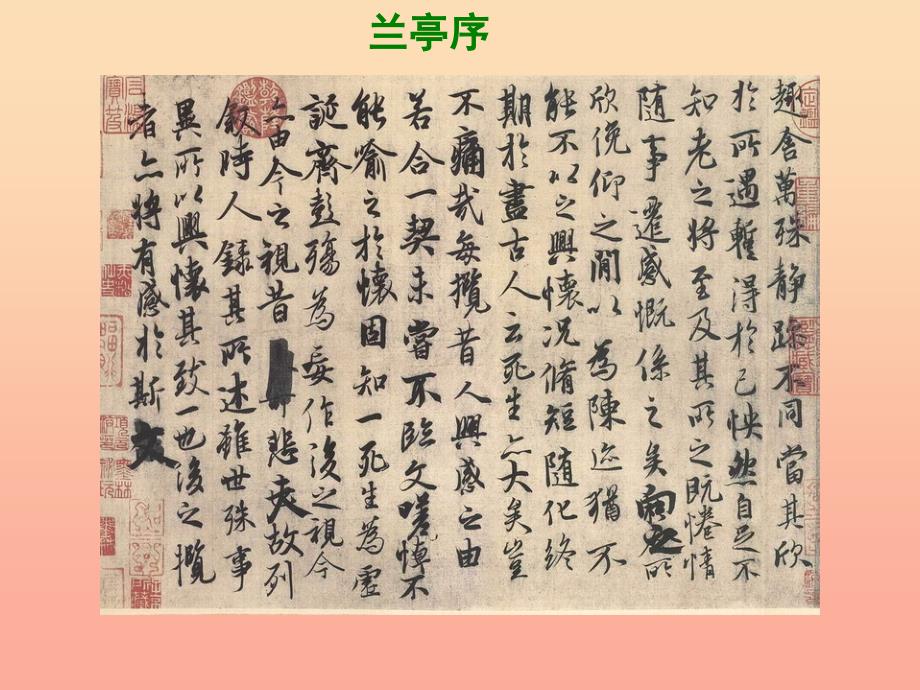 兰亭序
趣舍萬殊静躁不同當其欣
於所遇暫得於己怏然自足不
知老之將至及其所之既惓情
隨事遷感慨係之矣向之所
欣俛仰之閒以為陳迹猶不
能不以之興懷况脩短随化終
期於盡古人云死生亦大矣豈
不痛哉每攬昔人興感之由
若合一契未嘗不臨文嗟悼不
能喻之於懷固知一死生為虛
誕齊彭殤為妄作後之視今
亦由今之視昔悲夫故列
叙時人錄其所述雖世殊事
異所以興懷其致一也後之攬
者亦將有感於斯文